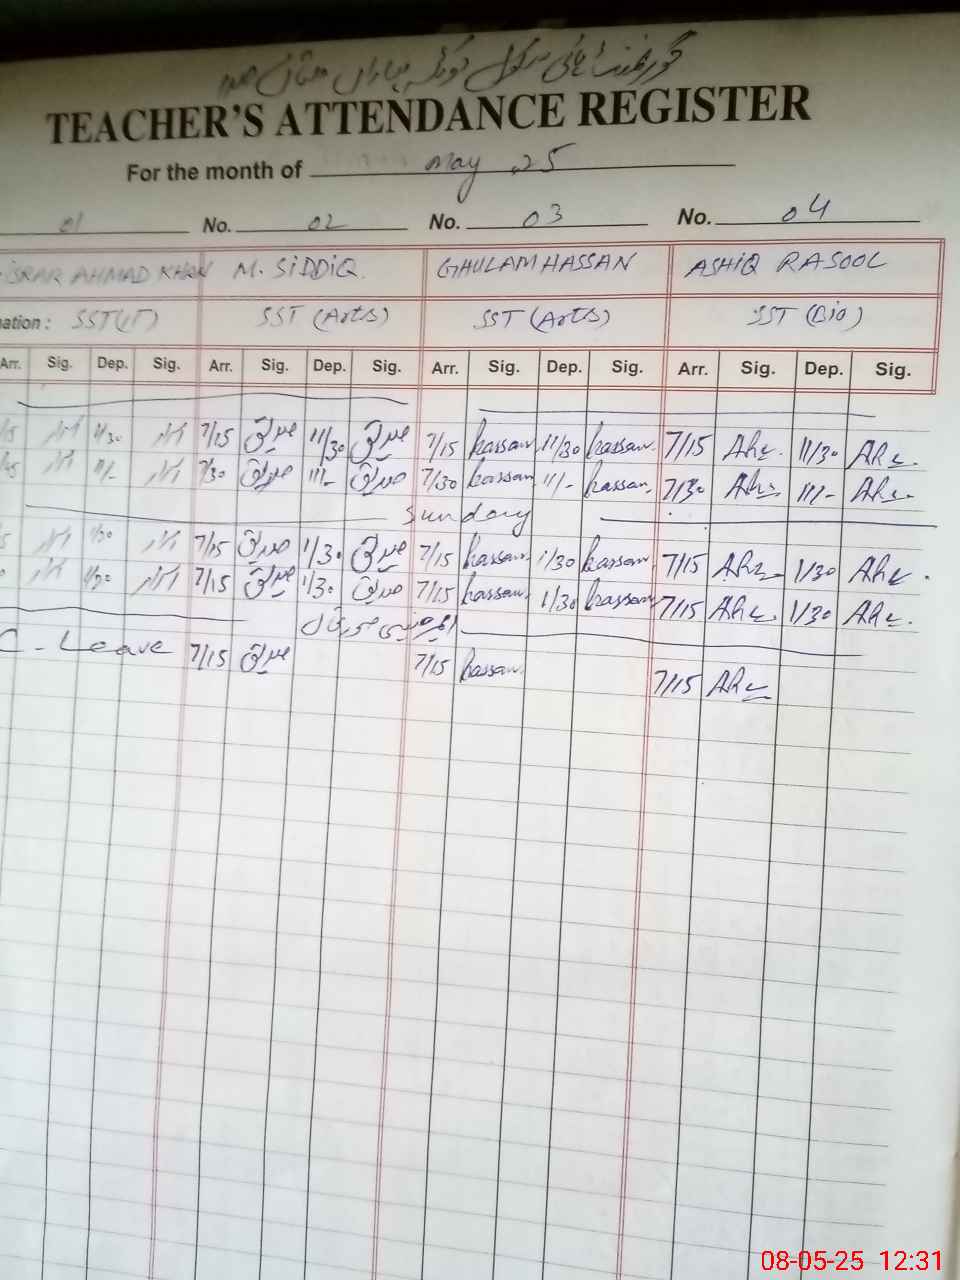 گورنمنٹ ہائی سکول
TEACHER'S ATTENDANCE REGISTER
For the month of May 25
01 No. 02 No. 03 No. 04
ISRAR AHMAD KHAN M. SIDDIQ. GHULAM HASSAN ASHIQ RASOOL
nation : SST(IT) SST (Arts) SST (Arts) SST (Bio)
Arr. Sig. Dep. Sig. Arr. Sig. Dep. Sig. Arr. Sig. Dep. Sig. Arr. Sig. Dep. Sig.
7/15 صدیق 11/30 صدیق 7/15 hassan 11/30 hassan. 7/15 11/30
11/- 7/30 صدیق 11/- صدیق 7/30 hassan 11/- hassan. 7/30 11/-
Sunday
1/30 7/15 صدیق 1/30 صدیق 7/15 hassan 1/30 hassan 7/15 1/30
1/30 7/15 صدیق 1/30 صدیق 7/15 hassan 1/30 hassan 7/15 1/30
C - Leave 7/15 صدیق 7/15 hassan. 7/15
08-05-25 12:31